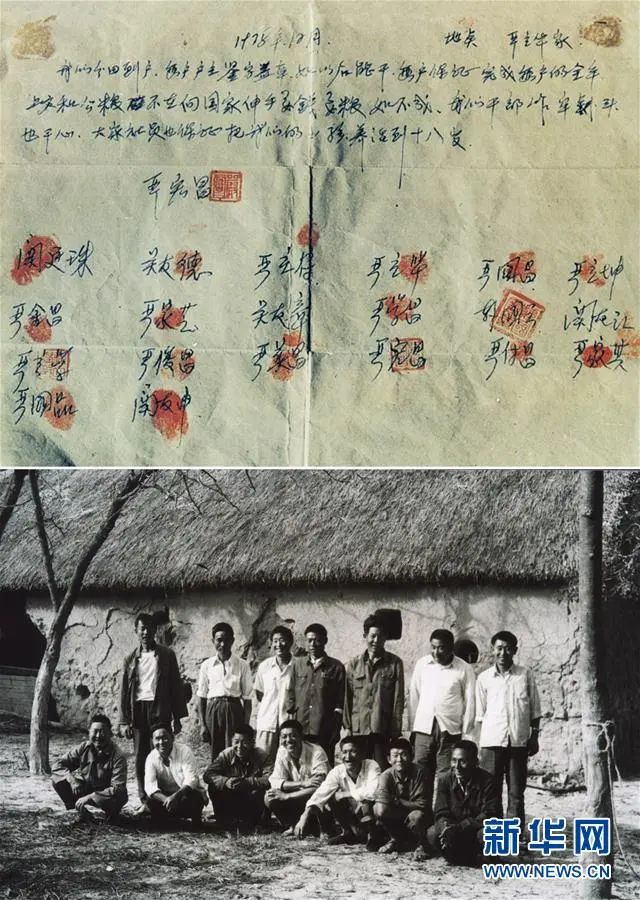 1978年12月. 地点 严立华家.
我们分田到户,每户户主签字盖章,如以后能干,每户保证完成每户的全年
上交和公粮,不在向国家伸手要钱要粮,如不成,我们干部作牢剎头
也干心,大家社员也保证把我们的小孩养活到十八岁.
严宏昌
关廷珠 关友德 严立符 严立华 严国昌 严立坤
严金昌 严家芝 关友章 严学昌 韩国云 关友江
严立学 严俊昌 严美昌 严宏昌 严付昌 严家其
严国品 关友申
新华网
WWW.NEWS.CN